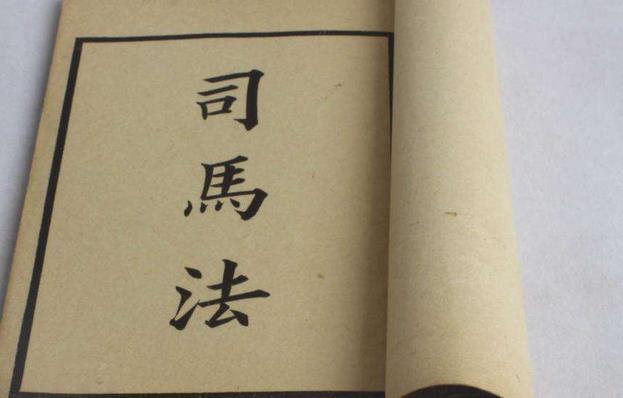 司馬法